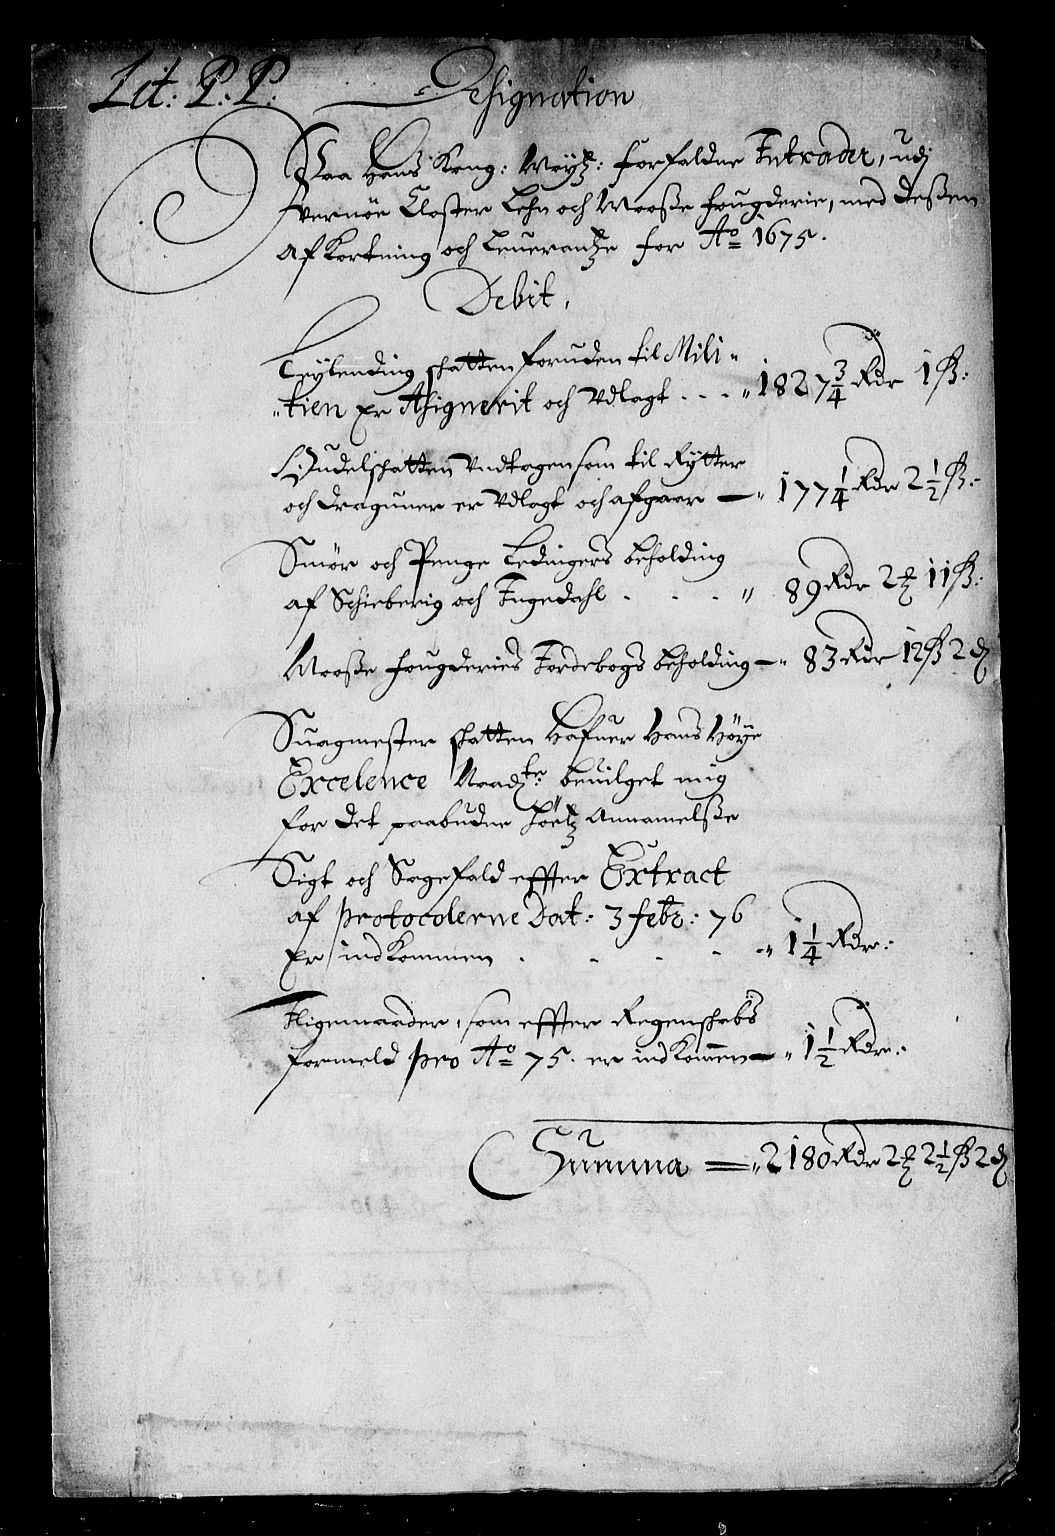 Lit: P: P:
Designation
Paa Hans Kong: Maÿtz: forfaldne Intrader, udj
Vernöe Closter Lehn och Mosße fougderie, med deßen
afkortning och Leuerantze for Ao 1675.
Debit,
Leÿlending skatten foruden til Mili-
tien er Assignerit och Vdlagt . . . „ 1827 3/4 Rdr 1 ß:
Odelskatten Vndtagen som til Rÿtter
och Draguner er Vdlagt och afgaar — „ 177 1/4 Rdr 2 1/2 ß:
Smör och Penge Ledingers beholding
af Schieberig och Ingedahl . . . „ 89 Rdr 2 ꝶ 11 ß:
Mosße fougderies Jordebogs beholding — „ 83 Rdr 12 ß 2 ₰
Suagmester skatten hafuer Hans Höÿe
Excelence Naadtr: beuilget mig
for det paabudne Annamelße
Sigt och Sagefald effter Extract
af protocolerne Dat: 3 febr: 76
er indkommen . . . . „ 1 1/4 Rdr:
Ligemaader, som effter Regenskabs
formeld pro Ao 75. er indkommen — „ 1 1/2 Rdr:
Summa — „ 2180 Rdr 2 ꝶ 2 1/2 ß 2 ₰